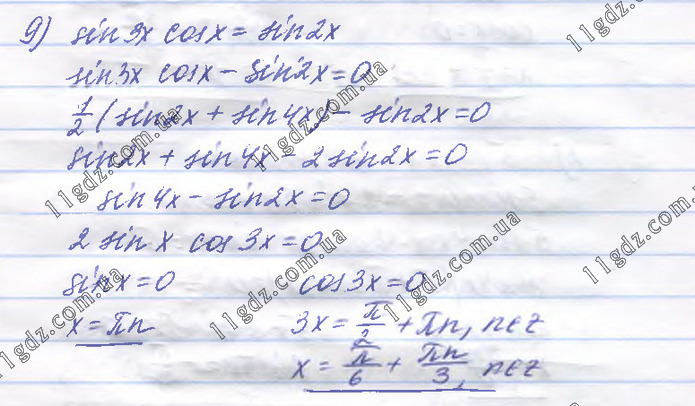 9) sin3x cosx = sin2x
sin3x cosx - sin2x = 0
1/2 (sin2x + sin4x) - sin2x = 0
sin2x + sin4x - 2 sin2x = 0
sin4x - sin2x = 0
2 sin x cos 3x = 0
sinx = 0 cos3x = 0
x = πn 3x = π/2 + πn, n∈z
x = π/6 + πn/3, n∈z
11gdz.com.ua
11gdz.com.ua
11gdz.com.ua
11gdz.com.ua
11gdz.com.ua
11gdz.com.ua
11gdz.com.ua
11gdz.com.ua